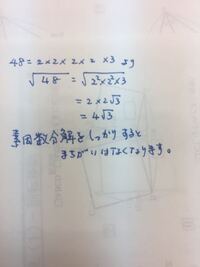 48=2×2×2×2×3 より
√48 = √2²×2²×3
= 2×2√3
= 4√3
素因数分解をしっかりすると
まちがいはなくなります。